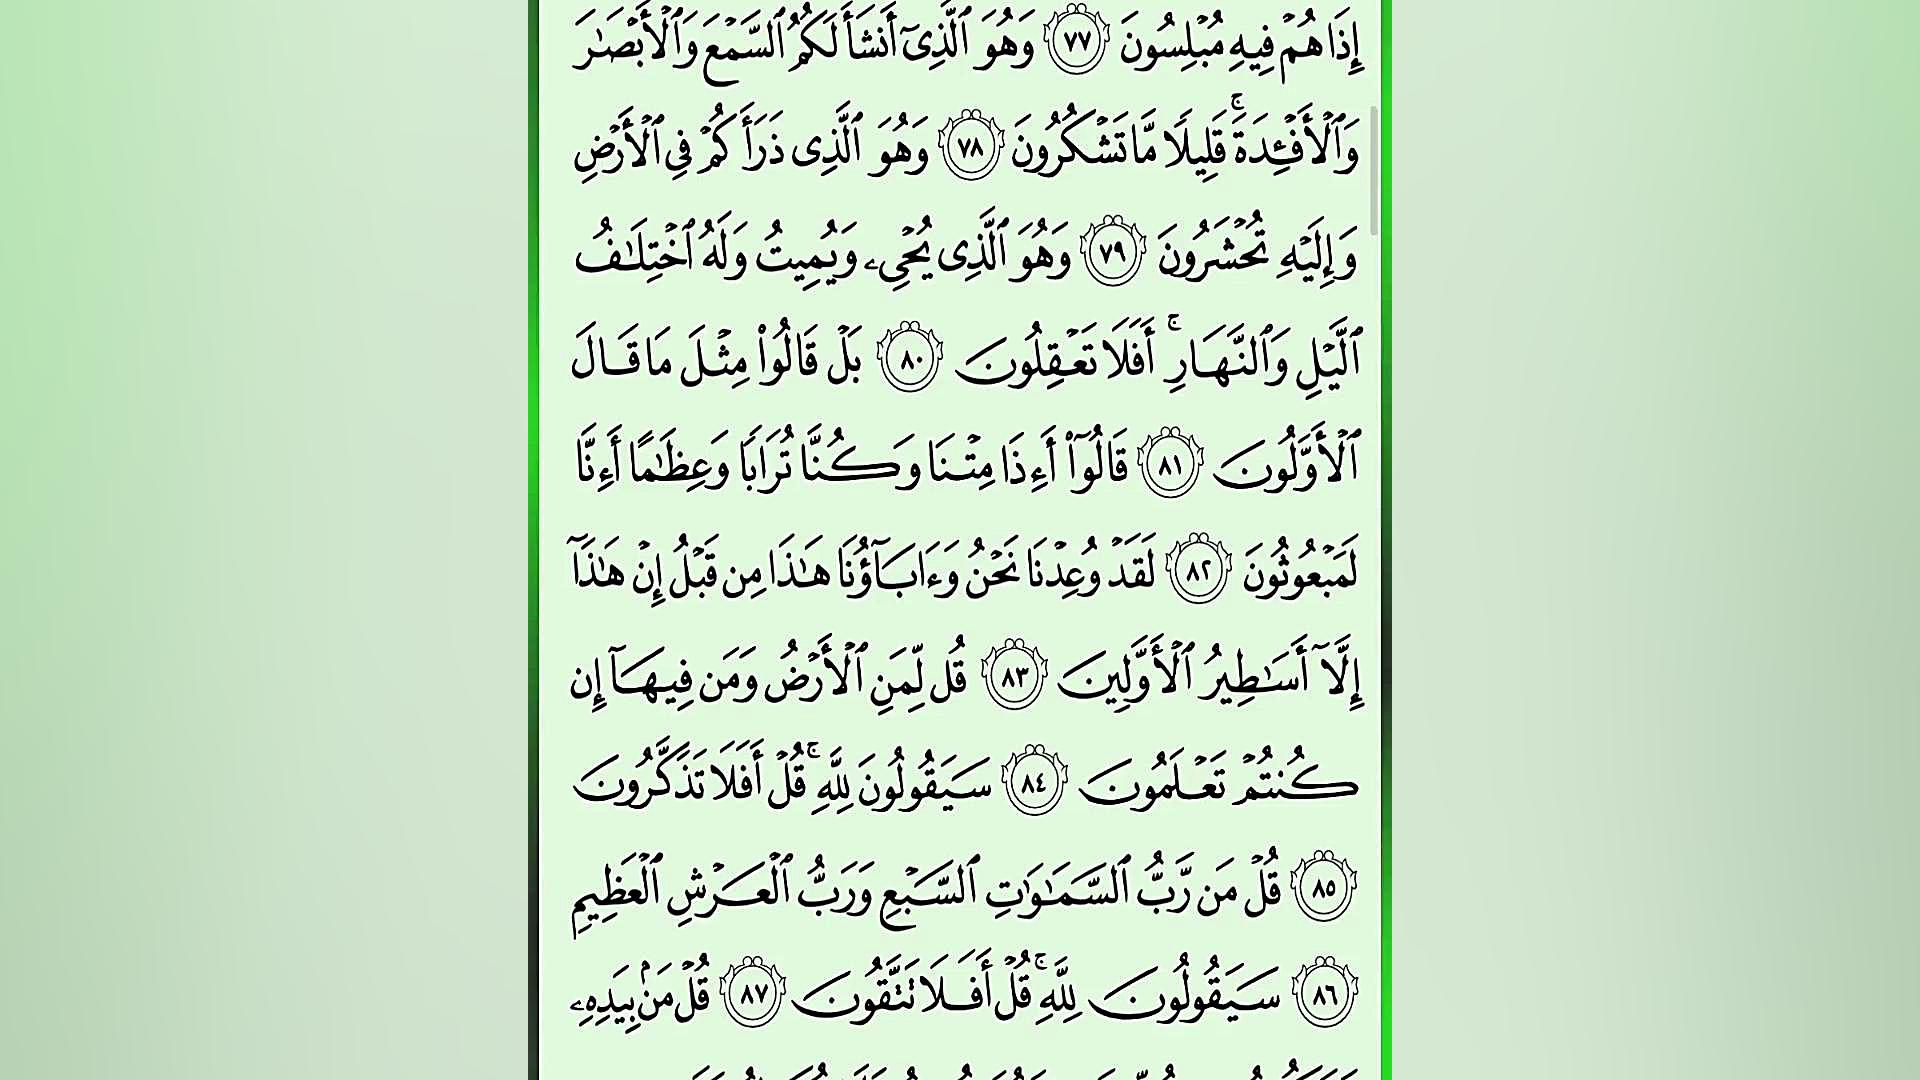 إِذَا هُمْ فِيهِ مُبْلِسُونَ ٧٧ وَهُوَ ٱلَّذِىٓ أَنشَأَ لَكُمُ ٱلسَّمْعَ وَٱلْأَبْصَٰرَ
وَٱلْأَفْـِٔدَةَ ۚ قَلِيلًا مَّا تَشْكُرُونَ ٧٨ وَهُوَ ٱلَّذِى ذَرَأَكُمْ فِى ٱلْأَرْضِ
وَإِلَيْهِ تُحْشَرُونَ ٧٩ وَهُوَ ٱلَّذِى يُحْىِۦ وَيُمِيتُ وَلَهُ ٱخْتِلَٰفُ
ٱلَّيْلِ وَٱلنَّهَارِ ۚ أَفَلَا تَعْقِلُونَ ٨٠ بَلْ قَالُوا۟ مِثْلَ مَا قَالَ
ٱلْأَوَّلُونَ ٨١ قَالُوٓا۟ أَءِذَا مِتْنَا وَكُنَّا تُرَابًا وَعِظَٰمًا أَءِنَّا
لَمَبْعُوثُونَ ٨٢ لَقَدْ وُعِدْنَا نَحْنُ وَءَابَآؤُنَا هَٰذَا مِن قَبْلُ إِنْ هَٰذَآ
إِلَّآ أَسَٰطِيرُ ٱلْأَوَّلِينَ ٨٣ قُل لِّمَنِ ٱلْأَرْضُ وَمَن فِيهَآ إِن
كُنتُمْ تَعْلَمُونَ ٨٤ سَيَقُولُونَ لِلَّهِ ۚ قُلْ أَفَلَا تَذَكَّرُونَ
٨٥ قُلْ مَن رَّبُّ ٱلسَّمَٰوَٰتِ ٱلسَّبْعِ وَرَبُّ ٱلْعَرْشِ ٱلْعَظِيمِ
٨٦ سَيَقُولُونَ لِلَّهِ ۚ قُلْ أَفَلَا تَتَّقُونَ ٨٧ قُلْ مَنۢ بِيَدِهِۦ